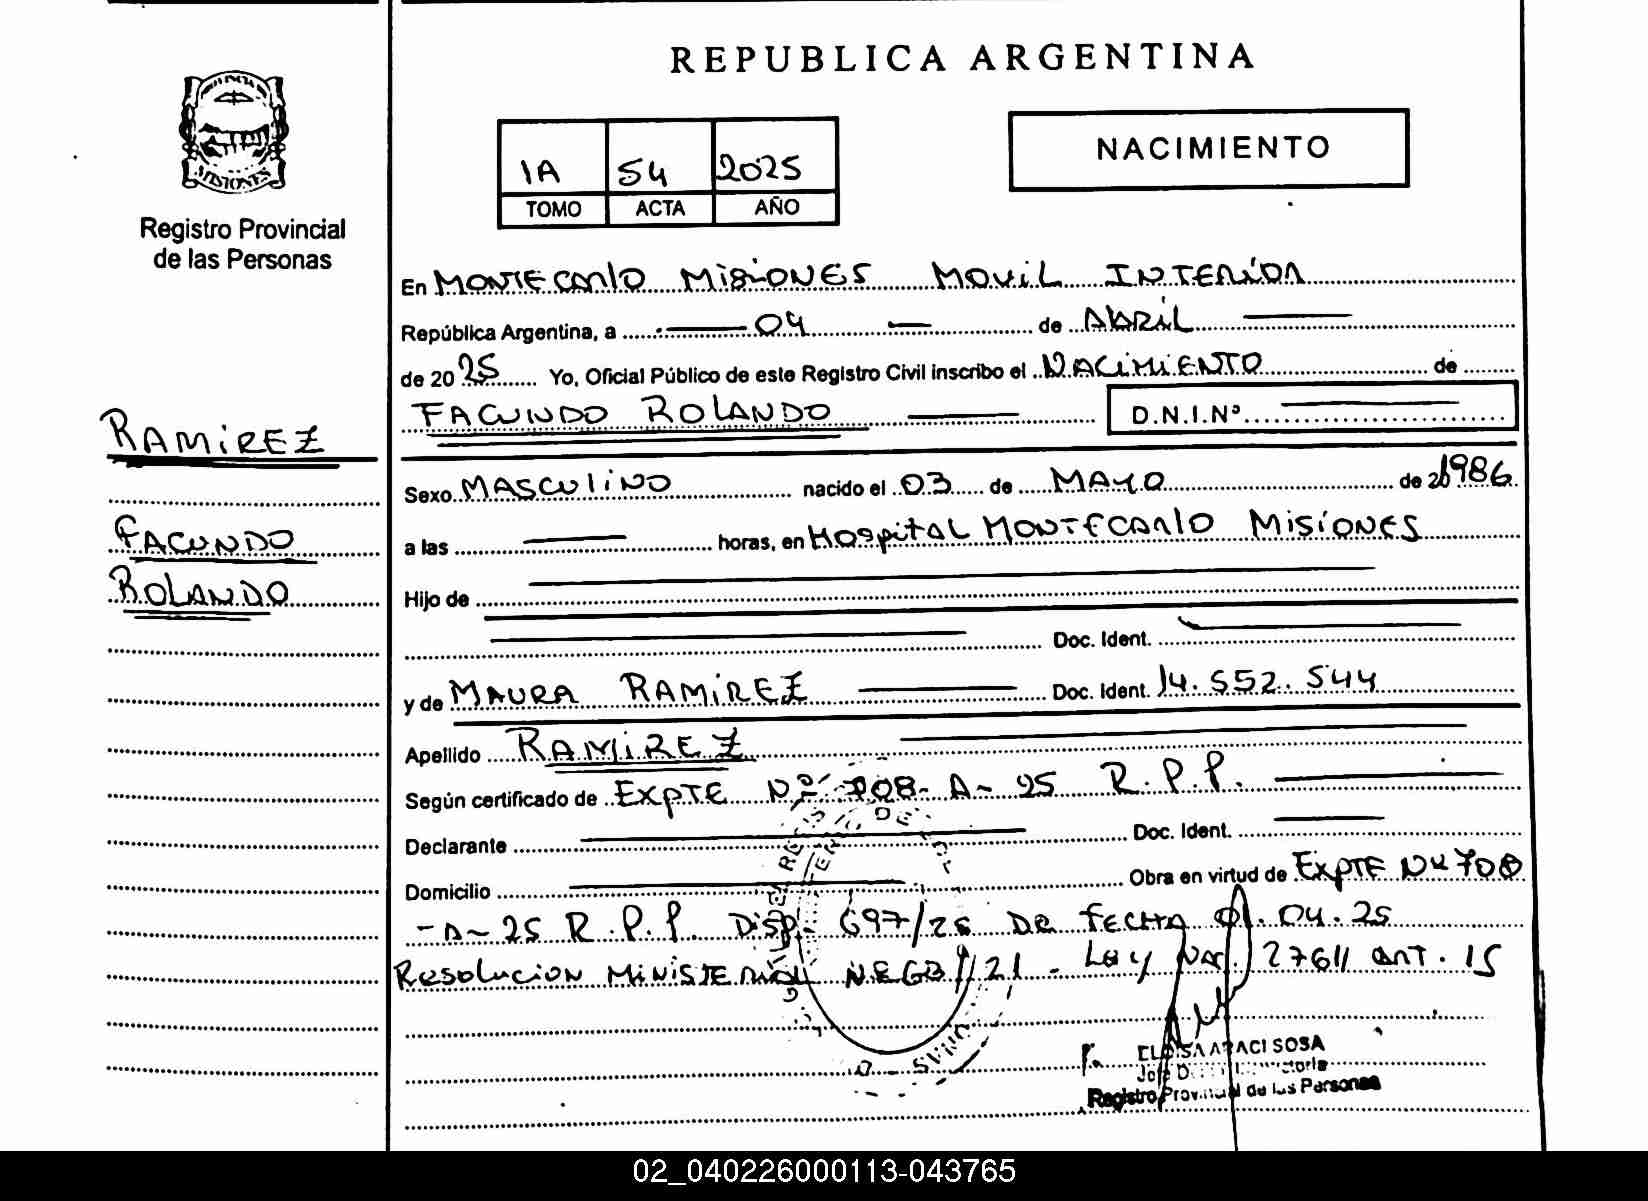 REPUBLICA ARGENTINA
MISIONES
Registro Provincial
de las Personas
1A 54 2025
TOMO ACTA AÑO
NACIMIENTO
En MONTECARLO MISIONES MOVIL INTERIOR
República Argentina, a 04 de ABRIL
de 2025 Yo, Oficial Público de este Registro Civil inscribo el NACIMIENTO de
FACUNDO ROLANDO D.N.I.Nº
RAMIREZ
FACUNDO
ROLANDO
Sexo MASCULINO nacido el 03 de MAYO de 1986
a las horas, en HOSPITAL MONTECARLO MISIONES
Hijo de
Doc. Ident.
y de MAURA RAMIREZ Doc. Ident. 14.552.544
Apellido RAMIREZ
Según certificado de EXPTE Nº 708-A-25 R.P.P.
Declarante Doc. Ident.
Domicilio Obra en virtud de EXPTE Nº 708
-A-25 R.P.P. DISP. 697/25 DE FECHA 01.04.25
RESOLUCION MINISTERIAL 1/21 - LEY NAC. 27611 ART. 15
ELOISA ARACI SOSA
Registro Provincial de las Personas
02_040226000113-043765